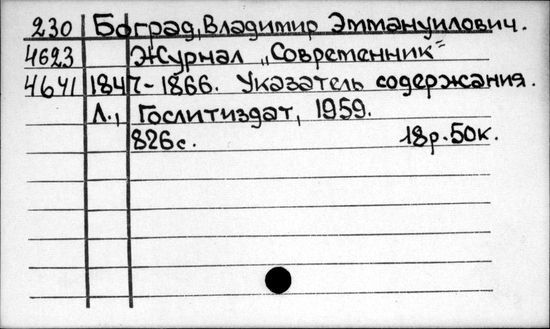 230 Боград, Владимир Эммануилович.
4623 Журнал „Современник"
4641 1847-1866. Указатель содержания.
Л., Гослитиздат, 1959.
826с. 18р.50к.